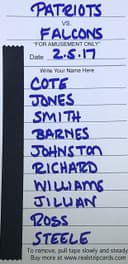 PATRIOTS
VS.
FALCONS
"FOR AMUSEMENT ONLY"
Date 2.5.17
Write Your Name Here
COTE
JONES
SMITH
BARNES
JOHNSTON
RICHARD
WILLIAMS
JILLIAN
ROSS
STEELE
To remove, pull tape slowly and steady
Buy more at www.realstripcards.com